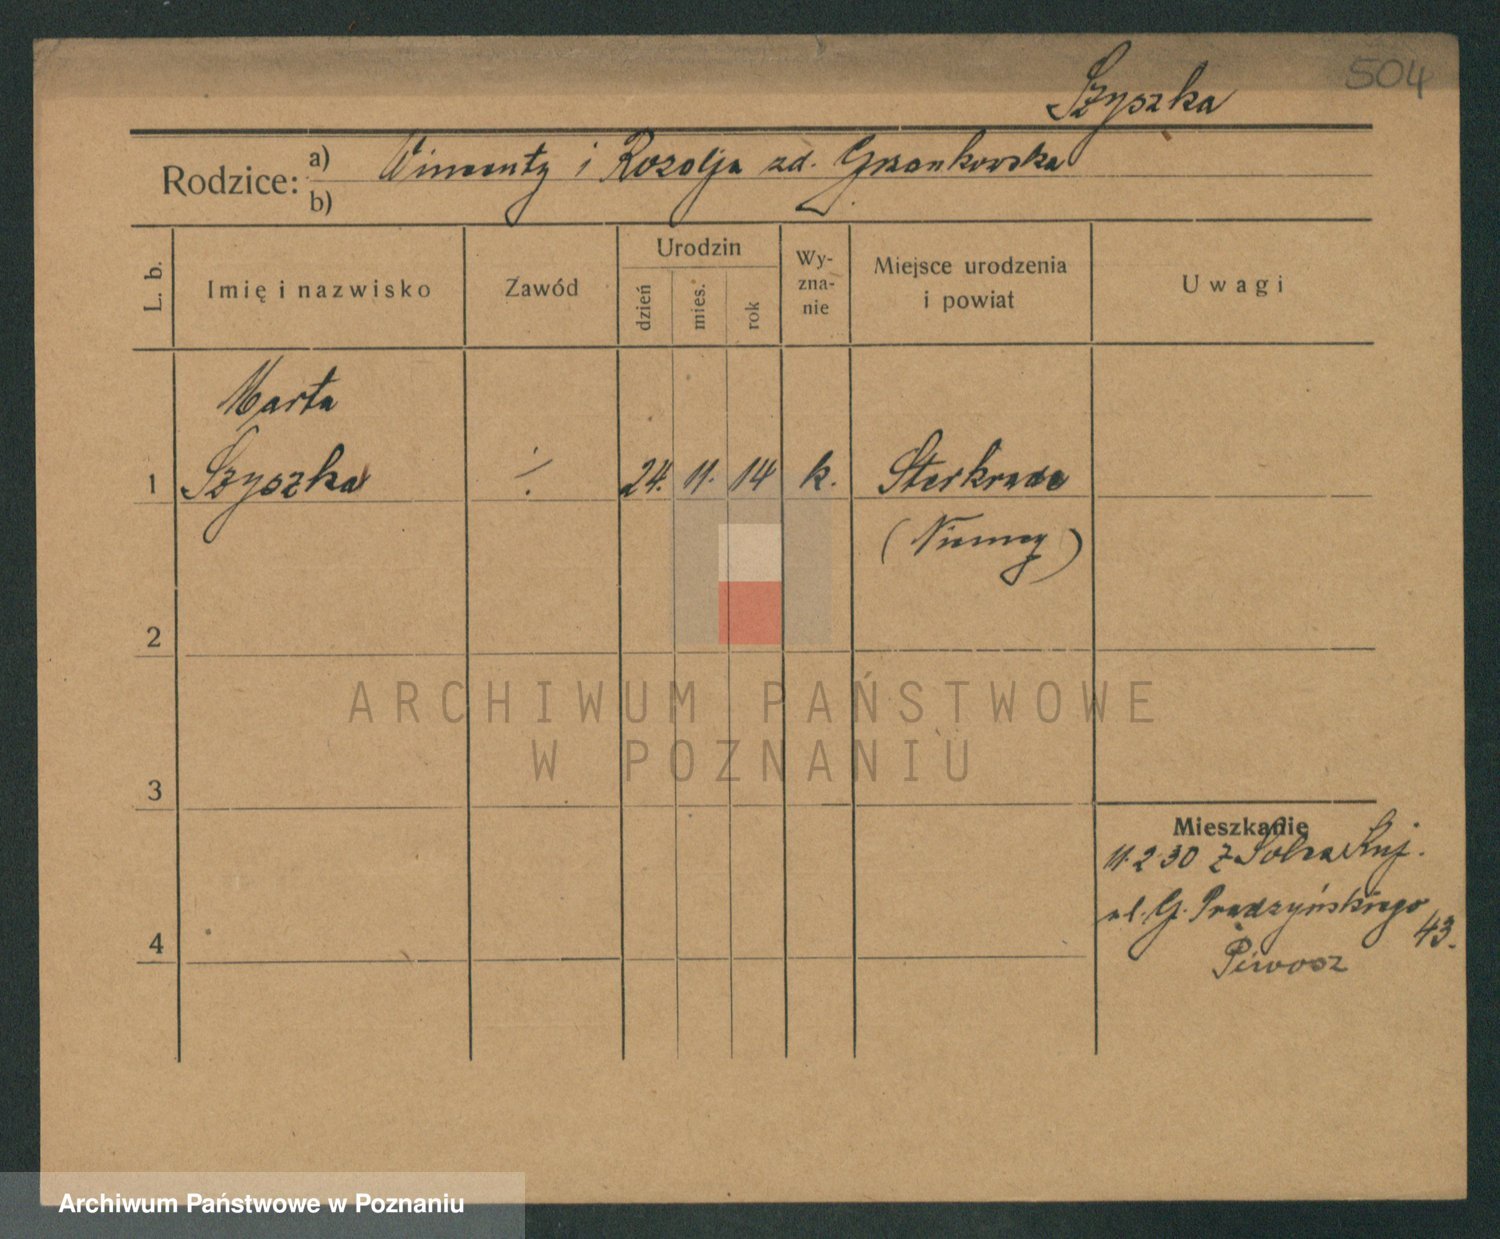 504
Szyszka
Rodzice: a) Wincenty i Rozalja zd. Grzankowska
b)
L. b.
Imię i nazwisko
Zawód
Urodzin
dzień
mies.
rok
Wy-
zna-
nie
Miejsce urodzenia
i powiat
Uwagi
Marta
1 Szyszka ./. 24. 11. 14 k. Sterkrade
(Niemcy)
2
3
4
Mieszkanie
11.2.30 z Kuj.
ul. G. Prądzyńskiego
43.
Piwosz
ARCHIWUM PAŃSTWOWE
W POZNANIU
Archiwum Państwowe w Poznaniu